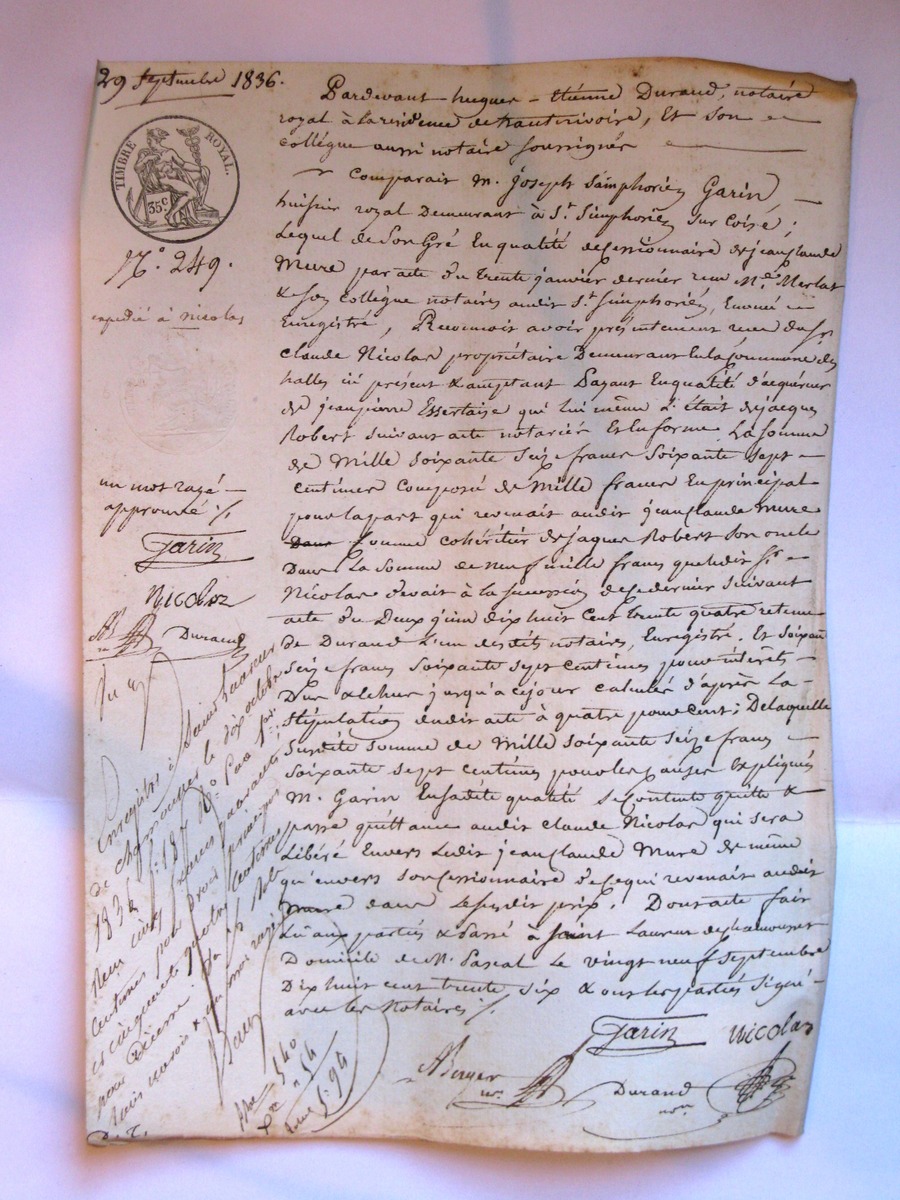 29 Septembre 1836.
TIMBRE ROYAL.
35c
N.o 249.
expedié à nicolas
un mot rayé
approuvé ./.
Garin
Nicolas
Durand
Pardevant hugues-étienne Durand, notaire
royal à la residence de hauterivoire, Et son
collégue aussi notaire soussignés
Comparait M. Joseph Simphorien Garin,
huissier royal Demeurant à St. Simphorien sur Coise;
Lequel de Son Gré En qualité de Cessionnaire de jean Claude
Mure par acte du trente janvier dernier reçu Me. Merlat
& son collégue notaires audit St. Simphorien,
Enregistré, Reconnait avoir présentement reçu du Sr.
Claude Nicolas propriétaire Demeurant En la Commune des
halles ici présent & acceptant Payant En qualité d'acquéreur
de jean pierre Essertaise qui lui même L'était de jacques
Robert Suivant acte notarié Et En forme, La Somme
de Mille Soixante Seize francs Soixante Sept
Centimes Composé de Mille francs En principal
pour la part qui revenait audit jean Claude Mure
Dans Comme cohéritier de jaques Robert Son oncle
Dans La Somme de neuf mille francs que ledit Sr.
Nicolas devait à la Succession de Ce dernier Suivant
acte du Deux juin dix huit Cent trente quatre retenu
de Durand L'un desdits notaires, Enregistré. Et Soixante
Seize francs Soixante Sept Centimes pour intérêts
Dus & échus jusqu'à ce jour Calculés d'après La
Stipulation dudit acte à quatre pour Cent; De laquelle
Susdite Somme de Mille Soixante Seize francs
Soixante Sept Centimes pour les Causes Expliquées
M. Garin En sadite qualité Se Contente quitte &
passe quittance audit Claude Nicolas qui Sera
Libéré Envers Ledit jean Claude Mure de même
qu'envers Son Cessionnaire de Ce qui revenait audit
Mure dans Le Susdit prix. Dont acte fait
Lu aux parties & Passé à Saint Laurent de Chamousset
Domicile de M. Pascal Le vingt neuf Septembre
Dix huit Cent trente Six & ont Les parties Signé
avec les Notaires ./.
Garin Nicolas
ABerger Durand
Enregistré à Saint Laurent
de chamousset le dix octobre
1836
Reçu cinq francs quarante
Centimes pour principal
et cinquante quatre Centimes
pour Décime.